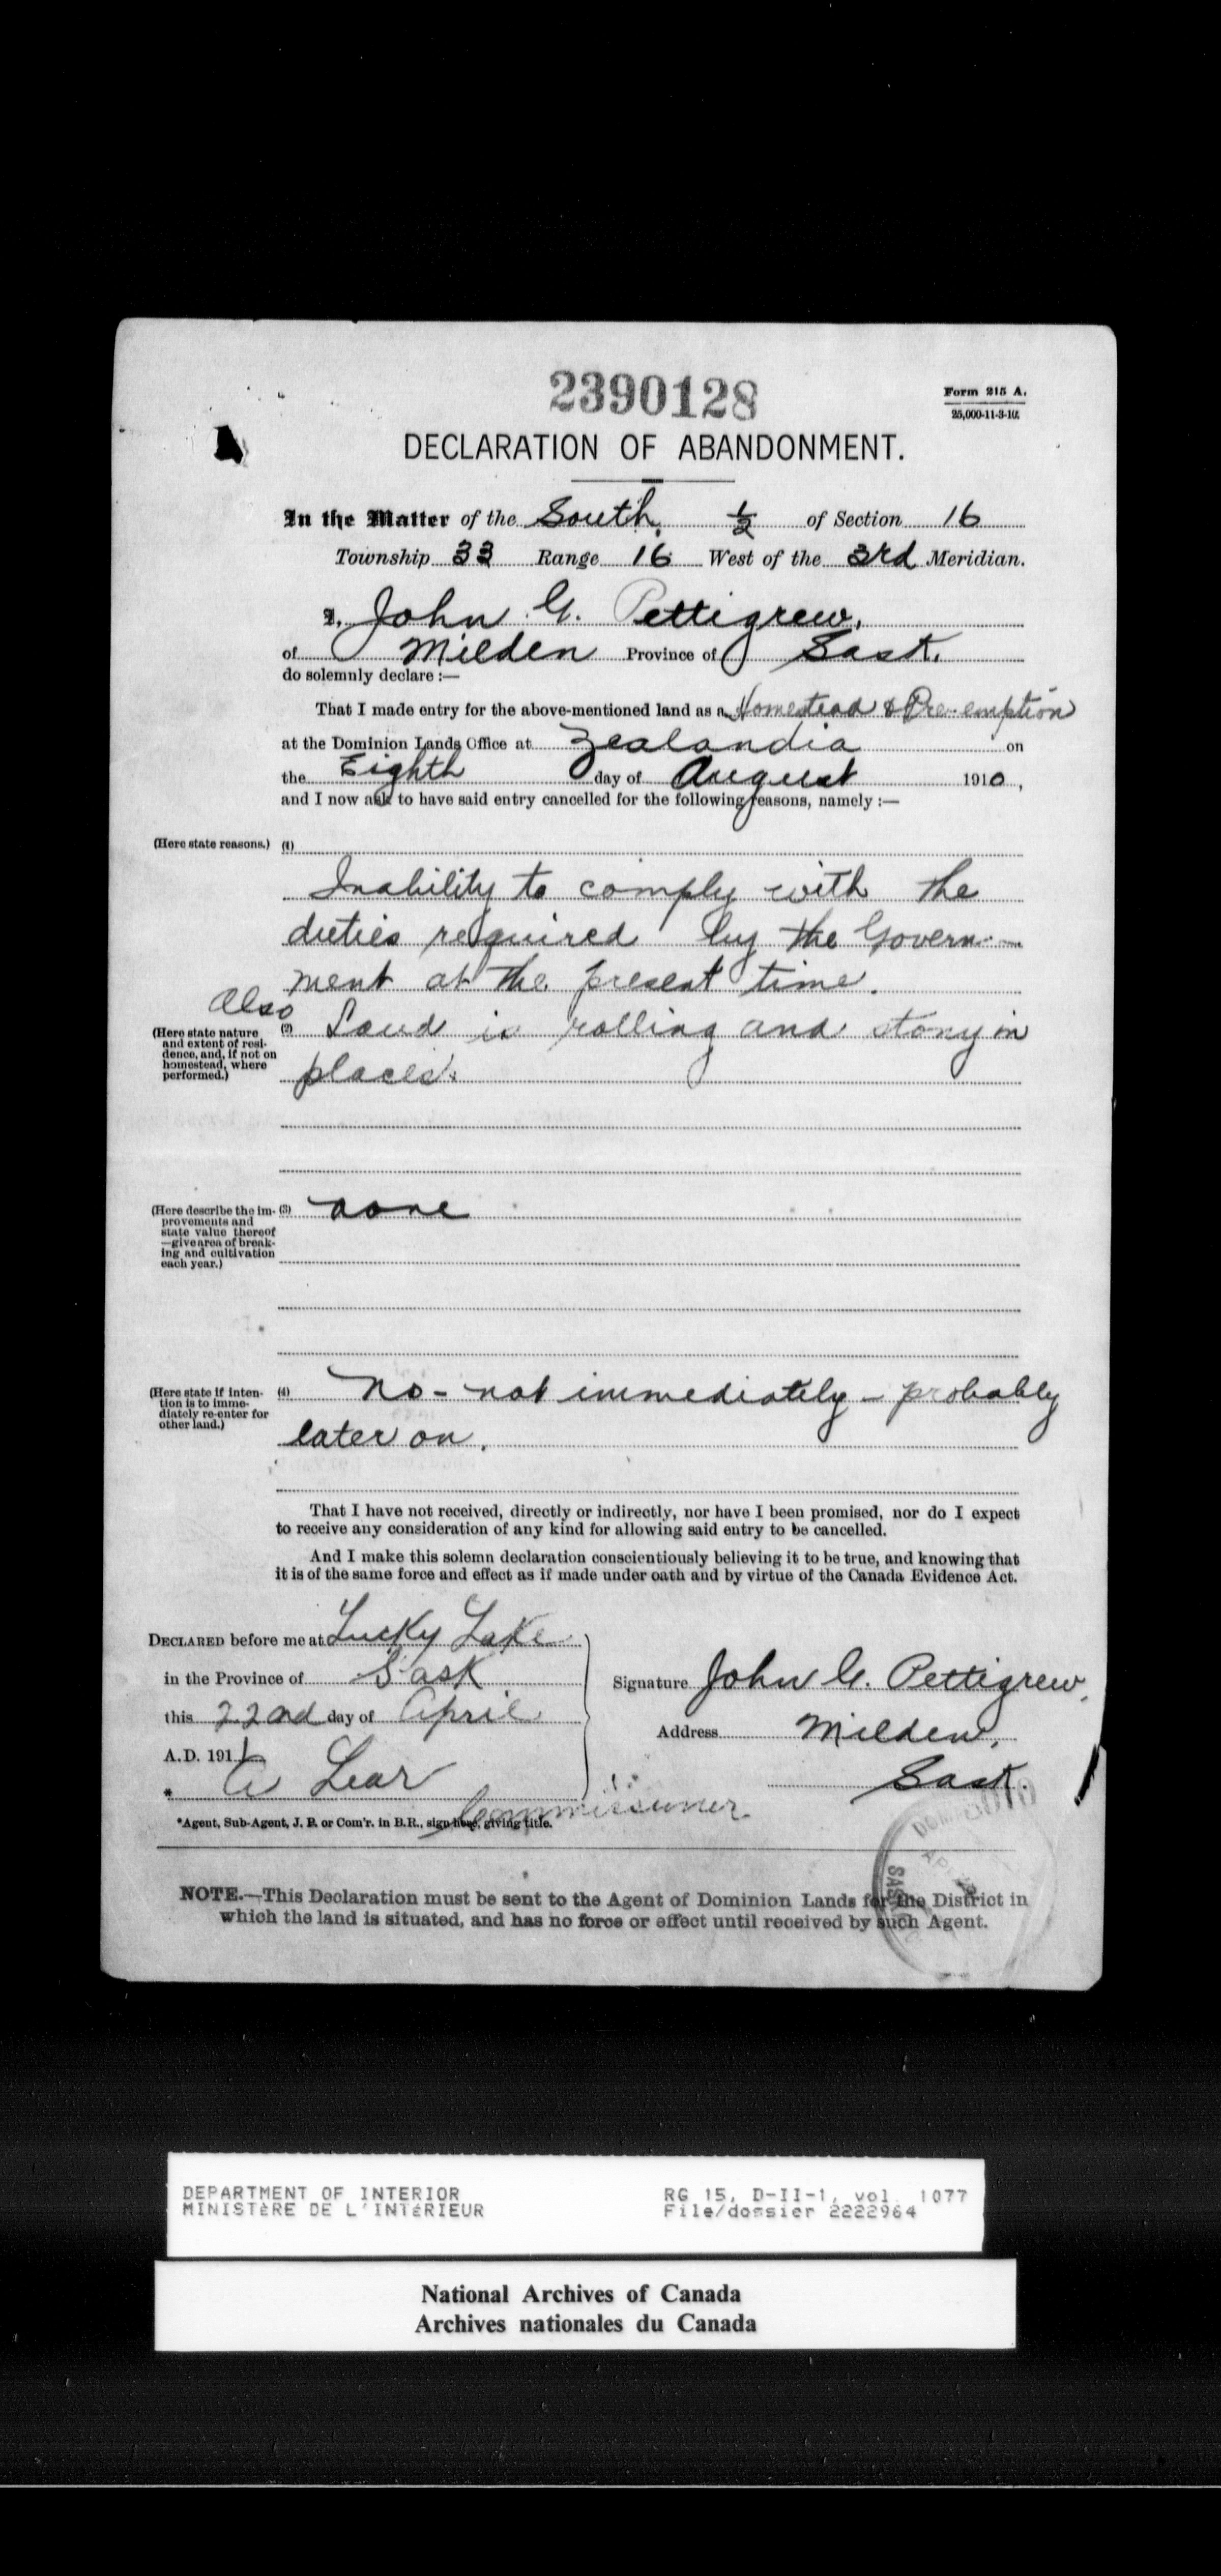 2390128
Form 215 A.
25,000-11-3-10.
DECLARATION OF ABANDONMENT.
In the Matter of the South ½ of Section 16
Township 33 Range 16 West of the 3rd Meridian.
I, John G. Pettigrew,
of Milden Province of Sask.
do solemnly declare :—
That I made entry for the above-mentioned land as a Homestead & Pre-emption
at the Dominion Lands Office at Zealandia on
the Eighth day of August 1910,
and I now ask to have said entry cancelled for the following reasons, namely :—
(Here state reasons.) (1)
Inability to comply with the
duties required by the Govern-
ment at the present time.
Also
(Here state nature and extent of residence, and, if not on homestead, where performed.) (2) Land is rolling and stony in
places.
(Here describe the improvements and state value thereof—give area of breaking and cultivation each year.) (3) none
(Here state if intention is to immediately re-enter for other land.) (4) No - not immediately - probably
later on.
That I have not received, directly or indirectly, nor have I been promised, nor do I expect
to receive any consideration of any kind for allowing said entry to be cancelled.
And I make this solemn declaration conscientiously believing it to be true, and knowing that
it is of the same force and effect as if made under oath and by virtue of the Canada Evidence Act.
DECLARED before me at Lucky Lake
in the Province of Sask
this 22nd day of April
A.D. 191
Lear
Commissioner
*Agent, Sub-Agent, J. P. or Com'r. in B.R., sign here, giving title.
Signature John G. Pettigrew,
Address Milden,
Sask.
NOTE.—This Declaration must be sent to the Agent of Dominion Lands for the District in
which the land is situated, and has no force or effect until received by such Agent.
DEPARTMENT OF INTERIOR
MINISTÈRE DE L'INTÉRIEUR
RG 15, D-II-1, vol. 1077
File/dossier 2222964
National Archives of Canada
Archives nationales du Canada